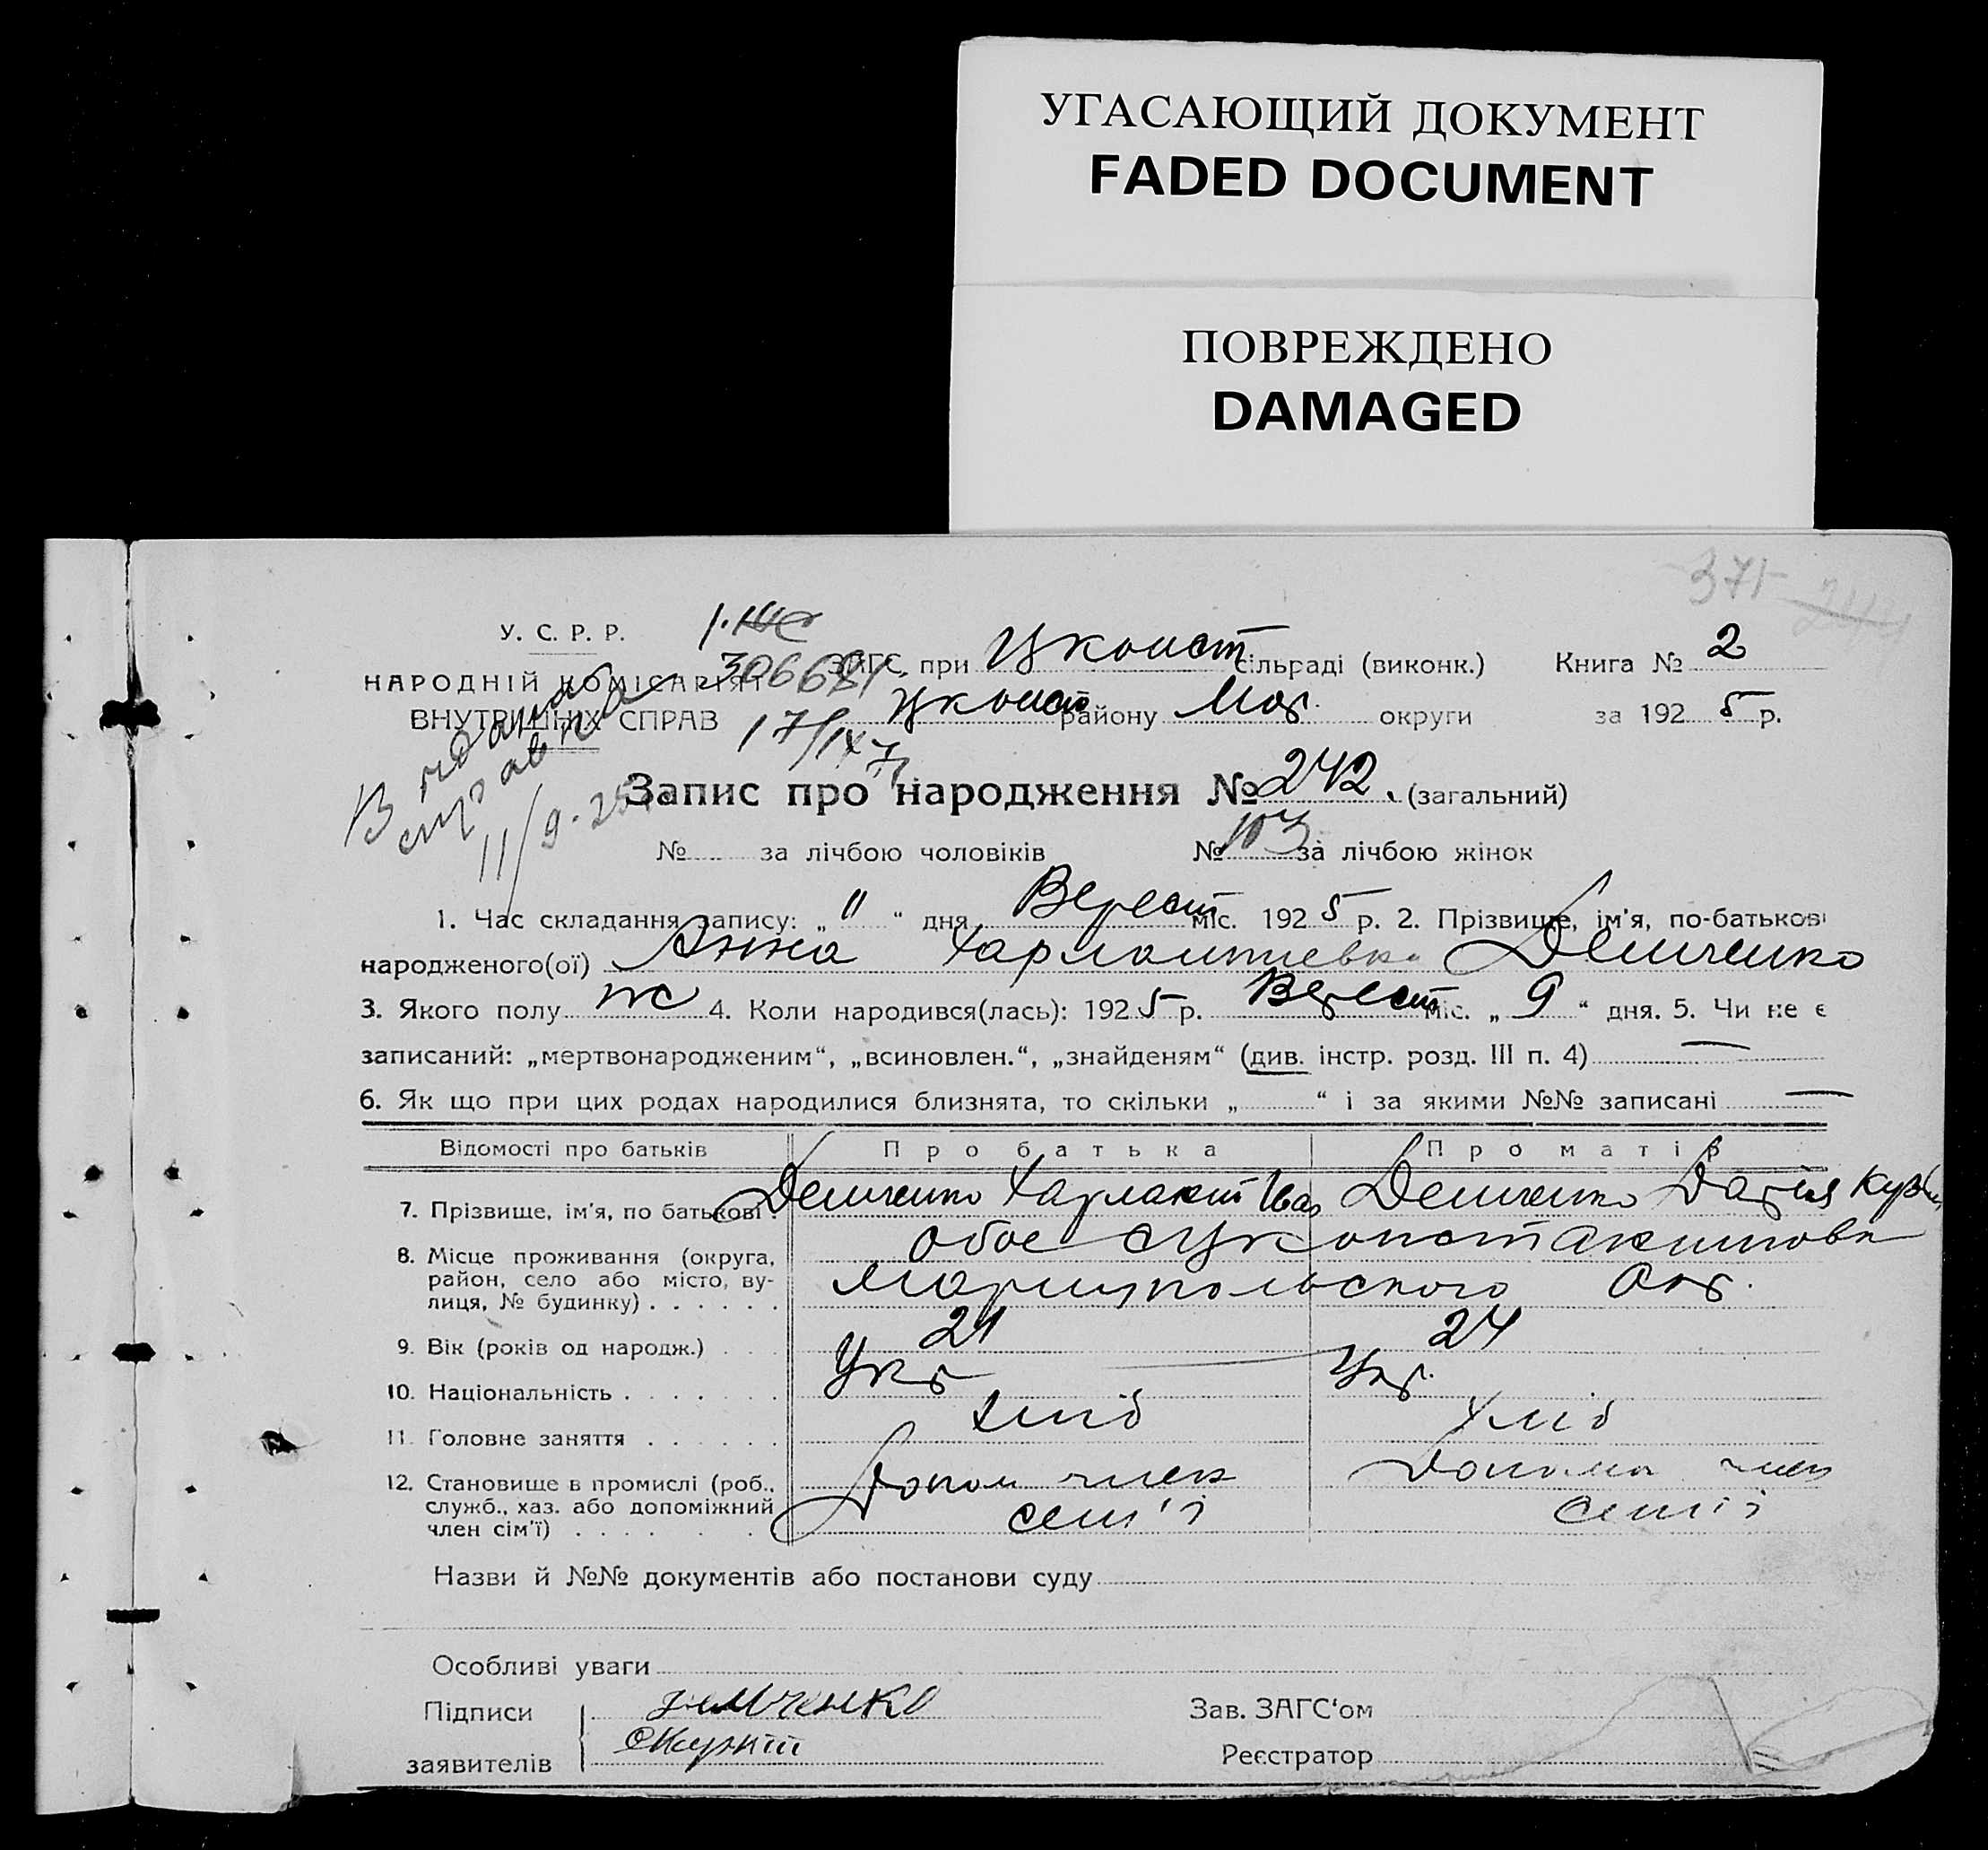 УГАСАЮЩИЙ ДОКУМЕНТ
FADED DOCUMENT
ПОВРЕЖДЕНО
DAMAGED
371
У. С. Р. Р.
НАРОДНІЙ КОМІСАРІЯТ
ВНУТРІШНІХ СПРАВ
306681
17/IX 71
11/9-25
ЗАГС, при Цконст сільраді (виконк.) Книга № 2
Цконст району Мар. округи за 1925 р.
Запис про народження № 242. (загальний)
№ за лічбою чоловіків № 103 за лічбою жінок
1. Час складання запису: „11“ дня Верест міс. 1925 р. 2. Прізвище, ім'я, по-батькові
народженого(ої) Анна Харлампиевна Демченко
3. Якого полу ж 4. Коли народився(лась): 1925 р. Верест міс. „9“ дня. 5. Чи не є
записаний: „мертвонародженим“, „всиновлен.“, „знайденям“ (див. інстр. розд. III п. 4) —
6. Як що при цих родах народилися близнята, то скільки „ “ і за якими №№ записані —
Відомості про батьків Про батька Про матір
7. Прізвище, ім'я, по батькові Демченко Харламп Ив Демченко Дарія Кузьм
8. Місце проживання (округа, район, село або місто, вулиця, № будинку) Обое с Цконстантиновк
Мариупольского Окр.
9. Вік (років од народж.) 21 24
10. Національність Укр Укр.
11. Головне заняття хліб хліб
12. Становище в промислі (роб., служб., хаз. або допоміжний член сім'ї) Допом член Допома член
сем'ї семії
Назви й №№ документів або постанови суду
Особливі уваги
Підписи заявителів Демченко
Зав. ЗАГС'ом
Реєстратор